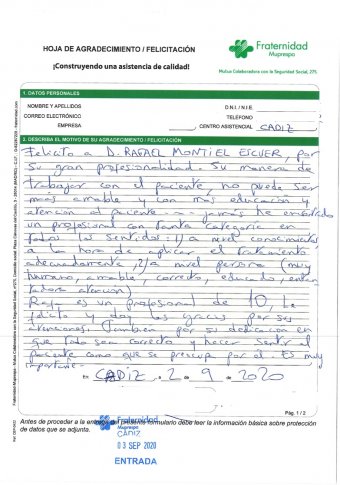 HOJA DE AGRADECIMIENTO / FELICITACIÓN
Fraternidad
Muprespa
¡Construyendo una asistencia de calidad!
Mutua Colaboradora con la Seguridad Social, 275
1. DATOS PERSONALES
NOMBRE Y APELLIDOS
D.N.I./N.I.E
CORREO ELECTRÓNICO
TELÉFONO
EMPRESA
CENTRO ASISTENCIAL CADIZ
2. DESCRIBA EL MOTIVO DE SU AGRADECIMIENTO / FELICITACIÓN
Felicito a D. RAFAEL MONTIEL ESCUER, por
su gran profesionalidad. Su manera de
trabajar con el paciente, no puede ser
mas amable y con mas educación y
atención al paciente -- jamás he encontrado
un profesional con tanta categoria en
todos los sentidos: 1) a nivel conocimientos
a la hora de aplicar el tratamiento
adecuadamente, 2) a nivel persona (muy
humano, amable, correcto, educado,
atención)
Rafa es un profesional de 10, le
felicito y doy las gracias por sus
atenciones. Tambien por su dedicación en
que todo sea correcto y hacer sentir al
paciente como que se preocupa por él. Es muy
importante.
En CADIZ, a 2 de 9 de 2020
Pág. 1 / 2
Antes de proceder a la entrega del presente formulario debe leer la información básica sobre protección
de datos que se adjunta.
Fraternidad
Muprespa
CÁDIZ
03 SEP 2020
ENTRADA